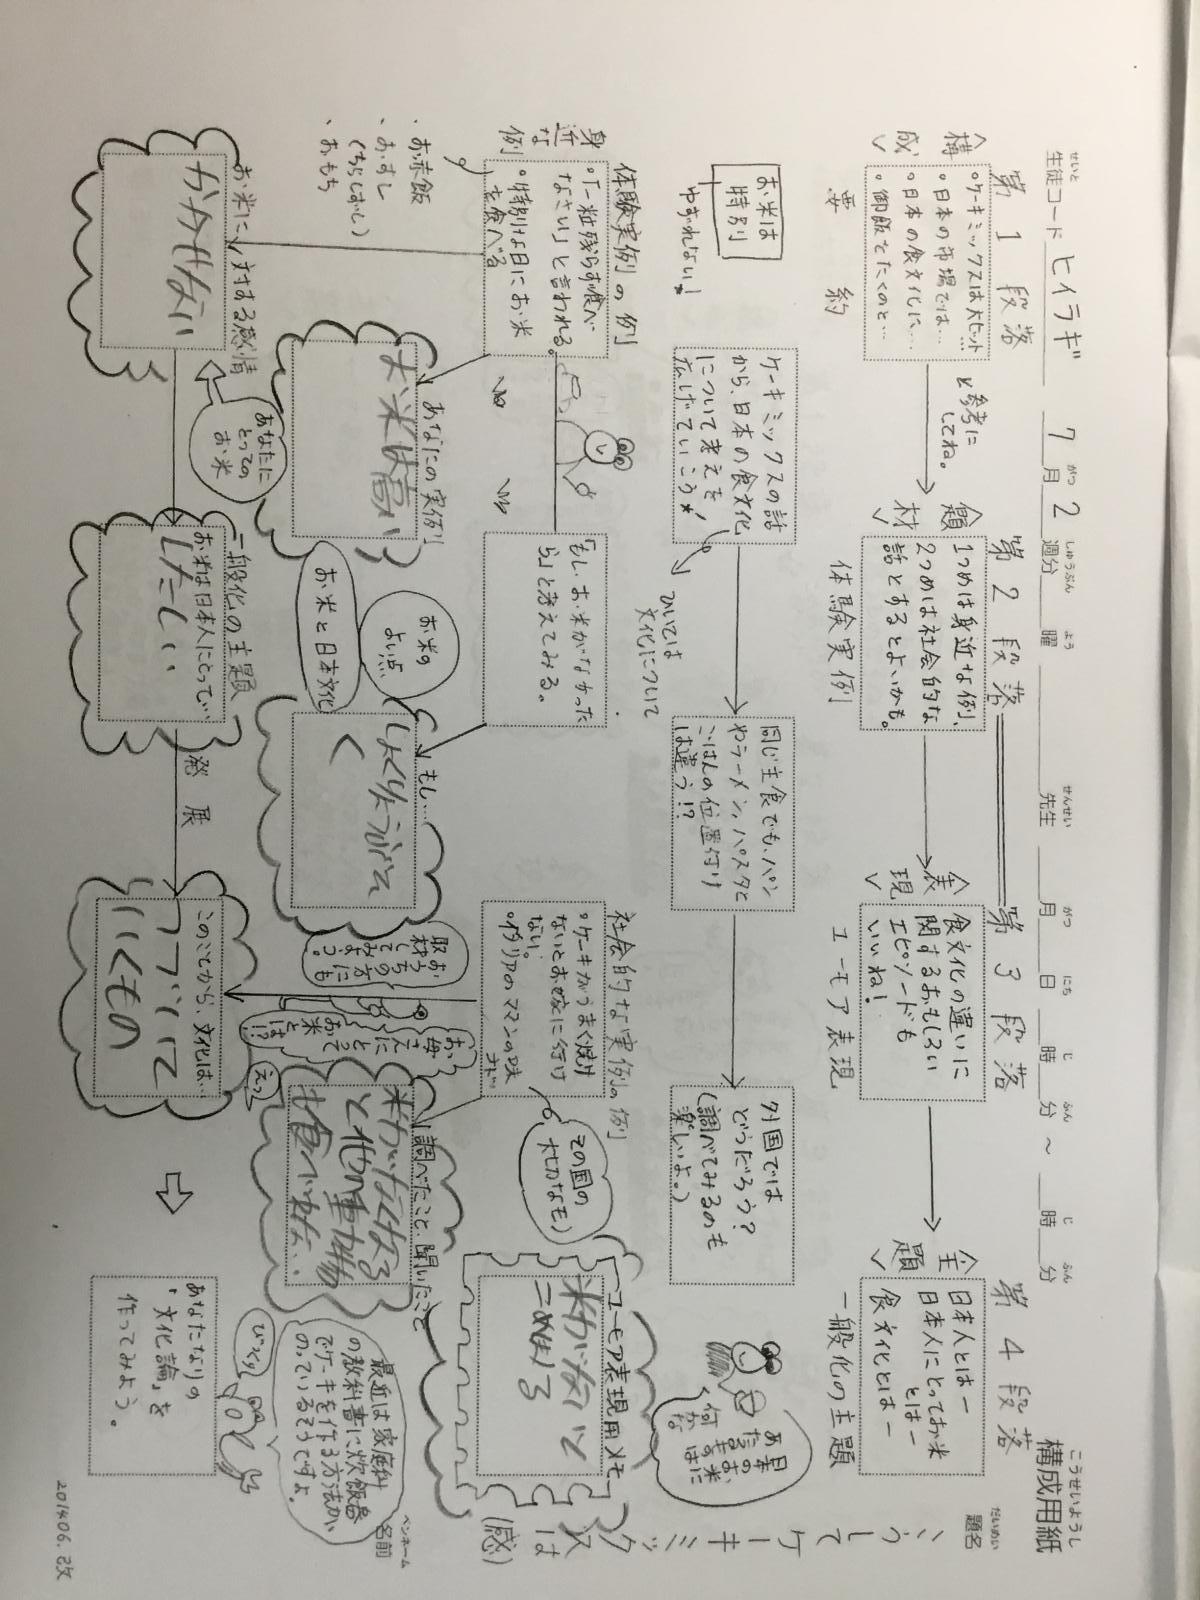 構成用紙
こうせいようし
生徒コード ヒイラギ 7月2週分 曜 先生 月 日 時 分 〜 時 分
せいと がつ しゅうぶん よう せんせい がつ にち じ ふん じ ふん
題名
だいめい
こうしてケーキミックスは(感)
ペンネーム
名前
第1段落
第2段落
第3段落
第4段落
<構成>
・ケーキミックスは大ヒット…
・日本の市場では…
・日本の食文化に…
・御飯をたくのと…
要約
参考に
してね。
<題材>
1つめは身近な例、
2つめは社会的な
話とするとよいかも。
体験実例
<表現>
食文化の違いに
関するおもしろい
エピソードも
いいね!
ユーモア表現
<主題>
日本人とはー
日本人にとってお米
とはー
食文化とはー
一般化の主題
お米は
特別
ゆずれない!
ケーキミックスの話
から、日本の食文化
について考えを
広げていこう
ひいては
文化について
同じ主食でも、パン
やラーメン、パスタと
ごはんの位置付け
は違う!?
外国では
どうだろう?
(調べてみるのも
楽しいよ。)
日本の
あなたの
お米は
何かな
身近な例
体験実例の例
・「一粒残らず食べ
なさい」と言われる。
・特別な日にお米
を食べる
・お赤飯
・おすし
(ちらしずし)
・おもち
「もし、お米がなかった
ら」と考えてみる。
社会的な実例の例
・ケーキがうまく焼け
ないとお嫁に行け
ない。
・イタリアのママンの味
ナド…
その国の
大切なモノ
ユーモア表現用メモ
米がないと
こめまる
あなたの実例
お米は高い
お米の
よい点
お米と日本文化
もし…
しょくりょうがな
く
おうちの方にも
取材して
みよう。
お母さんに
とって
お米とは!?
えっ
調べたこと、聞いたこと
米がなくなる
と他の動物
も食べれない..
最近は家庭科
の教科書に炊飯器
でケーキを作る方法が
のっているそうですよ。
びっくり
お米に対する感情
かかせない
あなたに
とっての
お米
一般化の主題
お米は日本人にとって…
したしい
発展
このことから、文化は…
あなたなりの
「文化論」を
作ってみよう。
201406.改